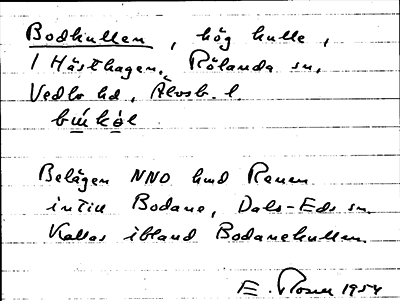 Bodkullen, hög kulle,
I Hästhagen, Rölanda sn,
Vedbo hd, Älvsb. l.
Belägen NNO
intill Bodane, Dals-Eds sn.
Kallas ibland Bodanekullen.
E. 1954